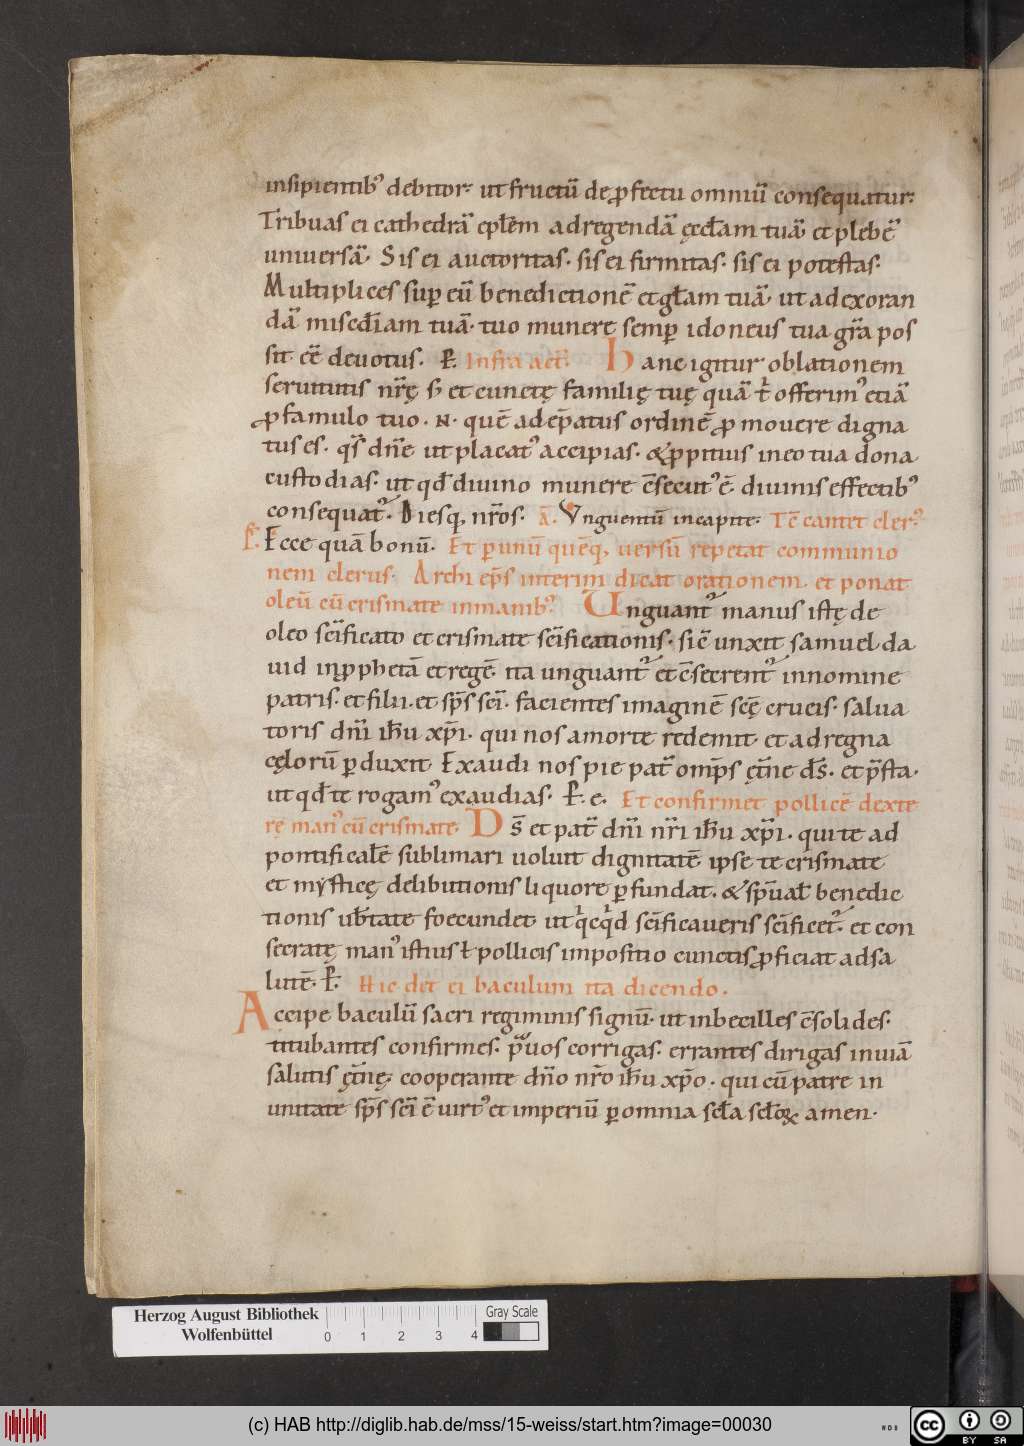 insipientib᾽ debitor· ut fructū de ꝓfectu omniū consequatur·
Tribuas ei cathedrā ep̄lem ad regendā ęccl̄am tuā· et plebē
uniuersā· Sis ei auctoritas· sis ei firmitas· sis ei potestas·
Multiplices suꝑ eū benedictionē et gl̄am tuā· ut ad exoran
dā misedīam tuā· tuo munere semꝑ idoneus tua gr̄a pos
sit ēē deuotus· P̶. Infra act̄. Hanc igitur oblationem
seruitutis nr̄ę s; et cunctę familię tuę quā t᾽ offerim᾽ etiā
ꝓ famulo tuo· N· quē ad ep̄atus ordinē ꝓmouere digna
tus es· qs̄ dn̄e ut placat᾽ accipias· & ꝓpitius in eo tua dona
custodias· ut qd̄ diuino munere c̄secut᾽ ē· diuinis effectib᾽
consequat᾽. Diesq; nr̄os· A̅. Unguentū in capite· Tc̄ cantet cler᾽
P̶. Ecce quā bonū. Et ꝑ unū quēq; uersū repetat communio
nem clerus· Archi ep̄s interim dicat orationem. et ponat
oleū cū crismate in manib᾽. Unguant᾽ manus istę de
oleo sc̄ificato et crismate sc̄ificationis· sic̄ unxit samuel da
uid in ꝓphetā et regē· ita unguant᾽ et c̄secrent᾽ in nomine
patris· et filii· et sp̄s sc̄i· facientes imaginē sc̄ę crucis· salua
toris dn̄i ih̄u xp̄i· qui nos a morte redemit· et ad regna
cęlorū ꝑduxit· Exaudi nos pie pat̄ omp̄s ęt̄ne ds̄· et p̄sta·
ut qd̄ te rogam᾽ exaudias· P̶. e. Et confirmet pollicē dexte
rę man᾽ cū crismate· Ds̄ et pat̄ dn̄i nr̄i ih̄u xp̄i· qui te ad
pontificalē sublimari uoluit dignitatē ipse te crismate
et mẏsticę delibutionis liquore ꝑfundat· & sp̄ual̄ benedic
tionis ub̄tate foecundet· ut qͥcqͥd sc̄ificaueris sc̄ificet᾽· et con
secratę man᾽ istius ł pollicis impositio cunctis ꝓficiat ad sa
lutē· P̶. Hic det ei baculum ita dicendo.
Accipe baculū sacri regiminis signū· ut inbecilles c̄solides·
titubantes confirmes· pͣuos corrigas· errantes dirigas in uiā
salutis ęt̄nę· cooperante dn̄o nr̄o ih̄u xp̄o· qui cū patre in
unitate sp̄s sc̄i ē uirt᾽ et imperiū ꝑ omnia sc̄la sc̄loꝝ amen·
Herzog August Bibliothek
Wolfenbüttel
0 1 2 3 4
Gray Scale
(c) HAB http://diglib.hab.de/mss/15-weiss/start.htm?image=00030
WDB
cc BY SA